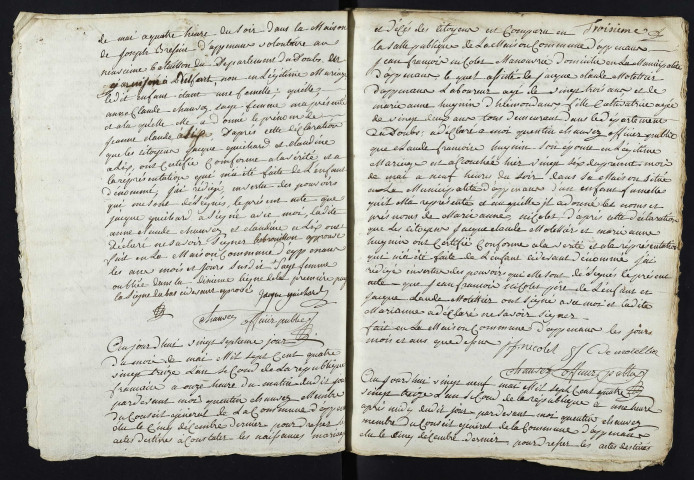 de mai a quatre heure du soir dans la Maison
de Joseph Bresson d'appenans volontaire au
neuviesme Bataillon du Departement du Doubs de
garnison a Belfort non en Légitime Mariage
ledit enfant dont une femelle
anne Claude Chausey sage femme ma présenté
et a la quelle elle a donné le prénom de
Jeanne Claude d'après cette déclaration
que les citoyens Jacque quichard et claudine
ont Certifié Conforme a la vérité et a
la représentation qui m'a été faite de L'enfant
dénommé, j'ai rédigé en vertu des pouvoirs
qui me sont délégués, le présent acte que
Jacque quichard a signé avec moi, Ladite
anne Claude Chausey et claudine ont
déclaré ne savoir signer
fait en La Maison Commune d'appenans
les ans mois et jours susdit
oublié dans la ligne de la premiere page
la ligne du bas ci dessus approuvé Jacque quichard
Chausey officier public
Aujourd'hui vingt septieme jour
du mois de mai Mil sept Cent quatre
vingt treize L'an second de La république
francaise a onze heure du matin dudit jour
par devant moi quentin Chausey Membre
du Conseil général de La Commune d'appenans
élu le cinq décembre dernier pour dresser les
actes destinés a Constater les naissances mariages
et décès des citoyens est Comparu en Troisieme
La salle publique de La Maison Commune d'appenans
jean francois nicolet Manœuvre domicilié en La Municipalité
d'appenans le quel assisté de Jacque claude Molottier
d'appenans Laboureur agé de vingt trois ans et de
marie anne huguin fille agée
de vingt deux ans tous demeurant dans le departement
du Doubs, a déclaré a moi quentin Chausey officier public
que claude francoise huguin son épouse en Légitime
Mariage est accouchée hier vingt six du présent mois
de mai a neuf heure du soir dans sa Maison située
en La Municipalité d'appenans d'un enfant femelle
quil Ma représenté et auquelle il a donné les noms et
prénoms de Marie anne nicolet d'après cette déclaration
que Les citoyens Jacque claude Molottier et marie anne
huguin ont Certifié Conforme a La vérité et a la représentation
qui m'a été faite de L'enfant ci dessus dénommé j'ai
rédigé en vertu des pouvoir qui me sont délégués Le présent
acte que jean francois nicolet père de L'enfant et
Jacque Claude Molottier ont signé avec moi et ladite
Marianne a déclaré ne savoir signer
fait en La Maison Commune d'appenans les jours
mois et ans que dessus
jf nicolet
Chausey officier public
Aujourd'hui vingt neuf mai Mil sept Cent quatre
vingt treize L'an second de La république a une heure
après midy dudit jour par devant moi quentin Chausey
membre du Conseil général de La Commune d'appenans
élu le cinq décembre dernier pour dresser les actes destinés